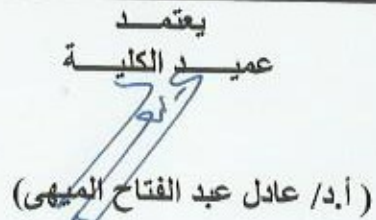 يعتمد
عميد الكلية
( أ.د/ عادل عبد الفتاح الميهى)